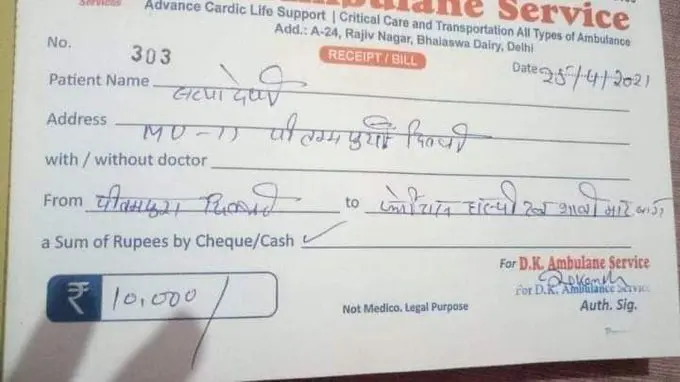 Services
Ambulane Service
Advance Cardic Life Support | Critical Care and Transportation All Types of Ambulance
Add.: A-24, Rajiv Nagar, Bhalaswa Dairy, Delhi
No. 303
RECEIPT / BILL
Date 25/4/2021
Patient Name
Address MU-11
with / without doctor
From to
a Sum of Rupees by Cheque/Cash ✓
₹ 10,000/
For D.K. Ambulane Service
For D.K. Ambulance Service
Not Medico. Legal Purpose
Auth. Sig.